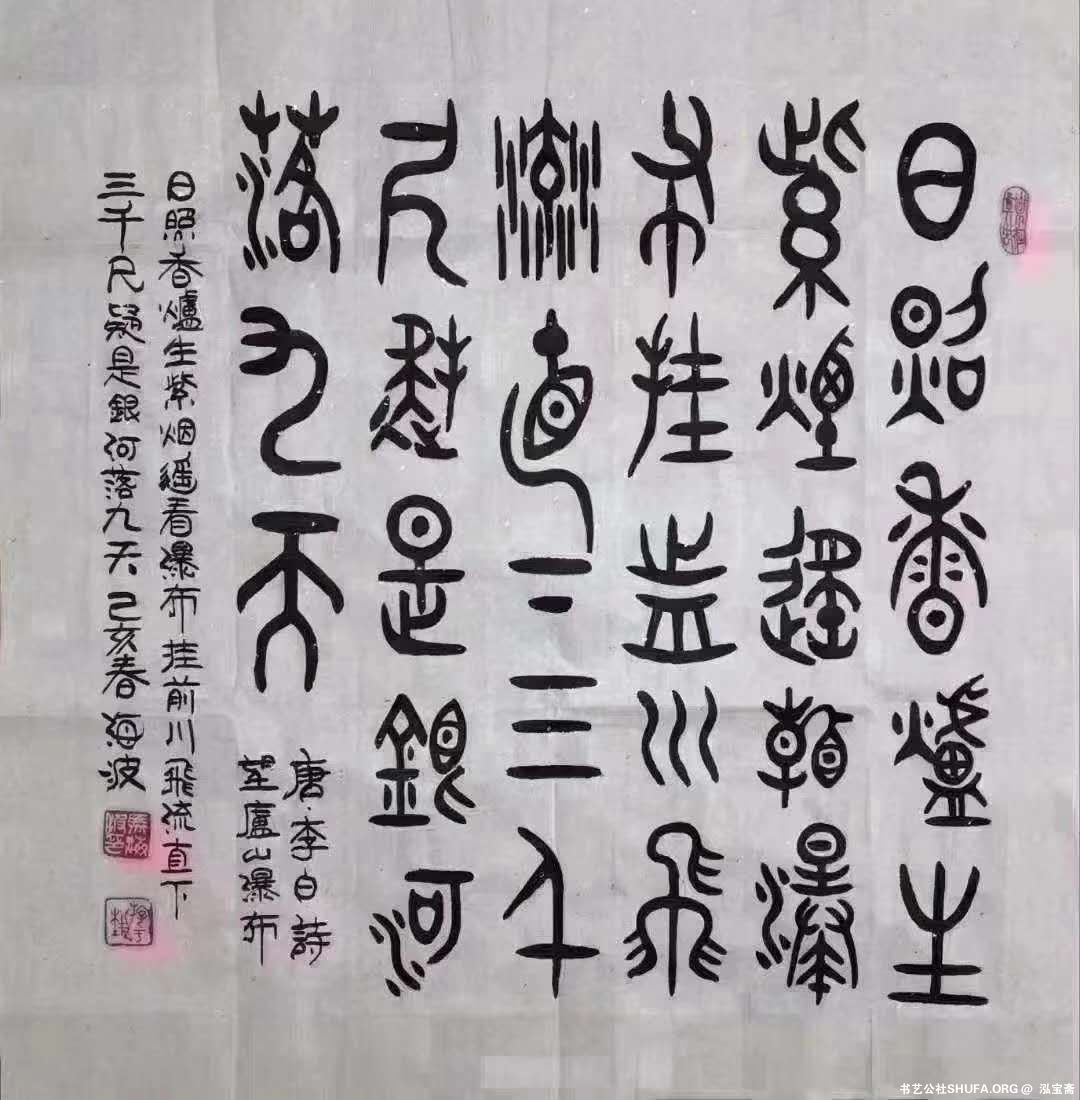 日照香爐生
紫煙遙看瀑
布挂前川飛
流直下三千
尺疑是銀河
落九天
唐·李白詩
望廬山瀑布
日照香爐生紫烟遙看瀑布挂前川飛流直下
三千尺疑是銀河落九天己亥春海波
书艺公社SHUFA.ORG @ 泓宝斋